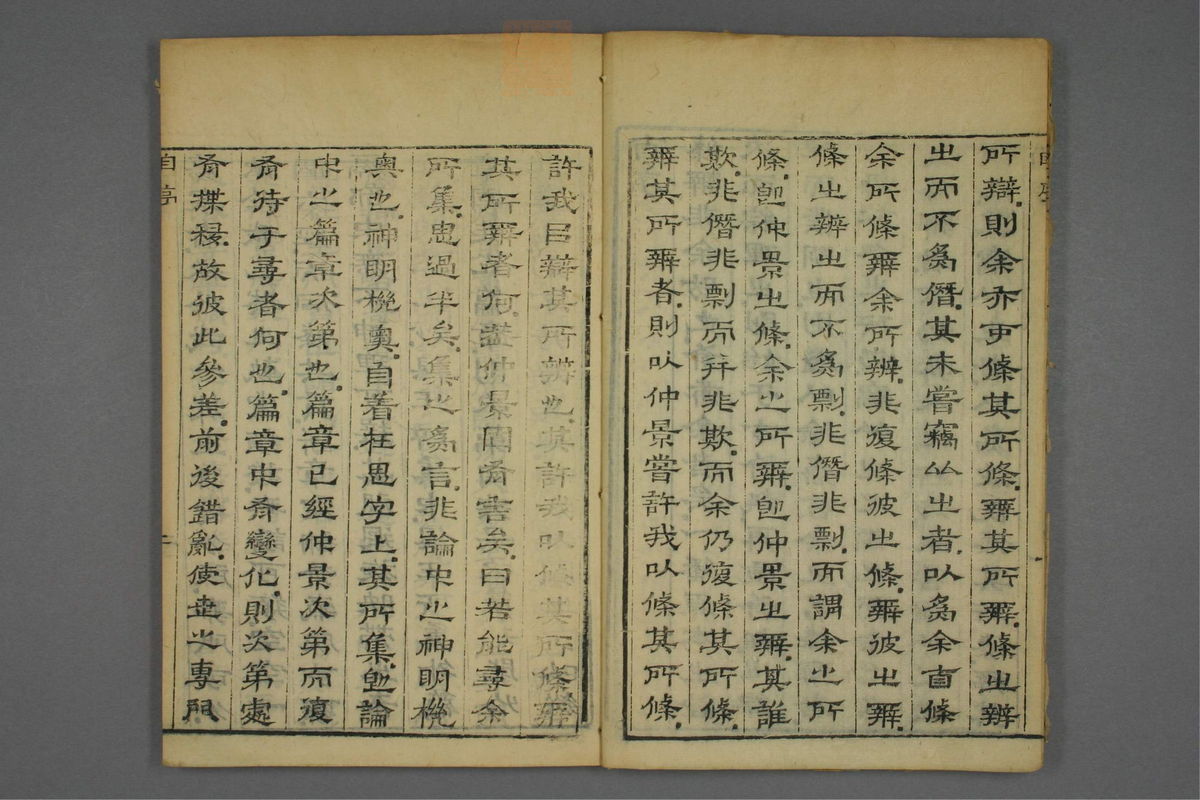 所辯則余亦可條其所條辨其所辨條之辨
之而不為僭其未嘗竊比之者以為余直條
余所條辨余所辨非復條彼之條辨彼之辨
條之辨之而不為剽非僭非剽而謂余之所
條即仲景之條余之所辨即仲景之辨其誰
欺非僭非剽而并非欺而余仍復條其所條
辨其所辨者則以仲景嘗許我以條其所條
許我㠯辨其所辨也其許我以條其所條辨
其所辨者何蓋仲景固有言矣曰若能尋余
所集思過半矣集之為言非論中之神明機
奧也神明機奧自着在思字上其所集即論
中之篇章次第也篇章已經仲景次第而復
有待于尋者何也篇章中有變化則次第處
有揲移故彼此參差前後錯亂使走之專門
自序